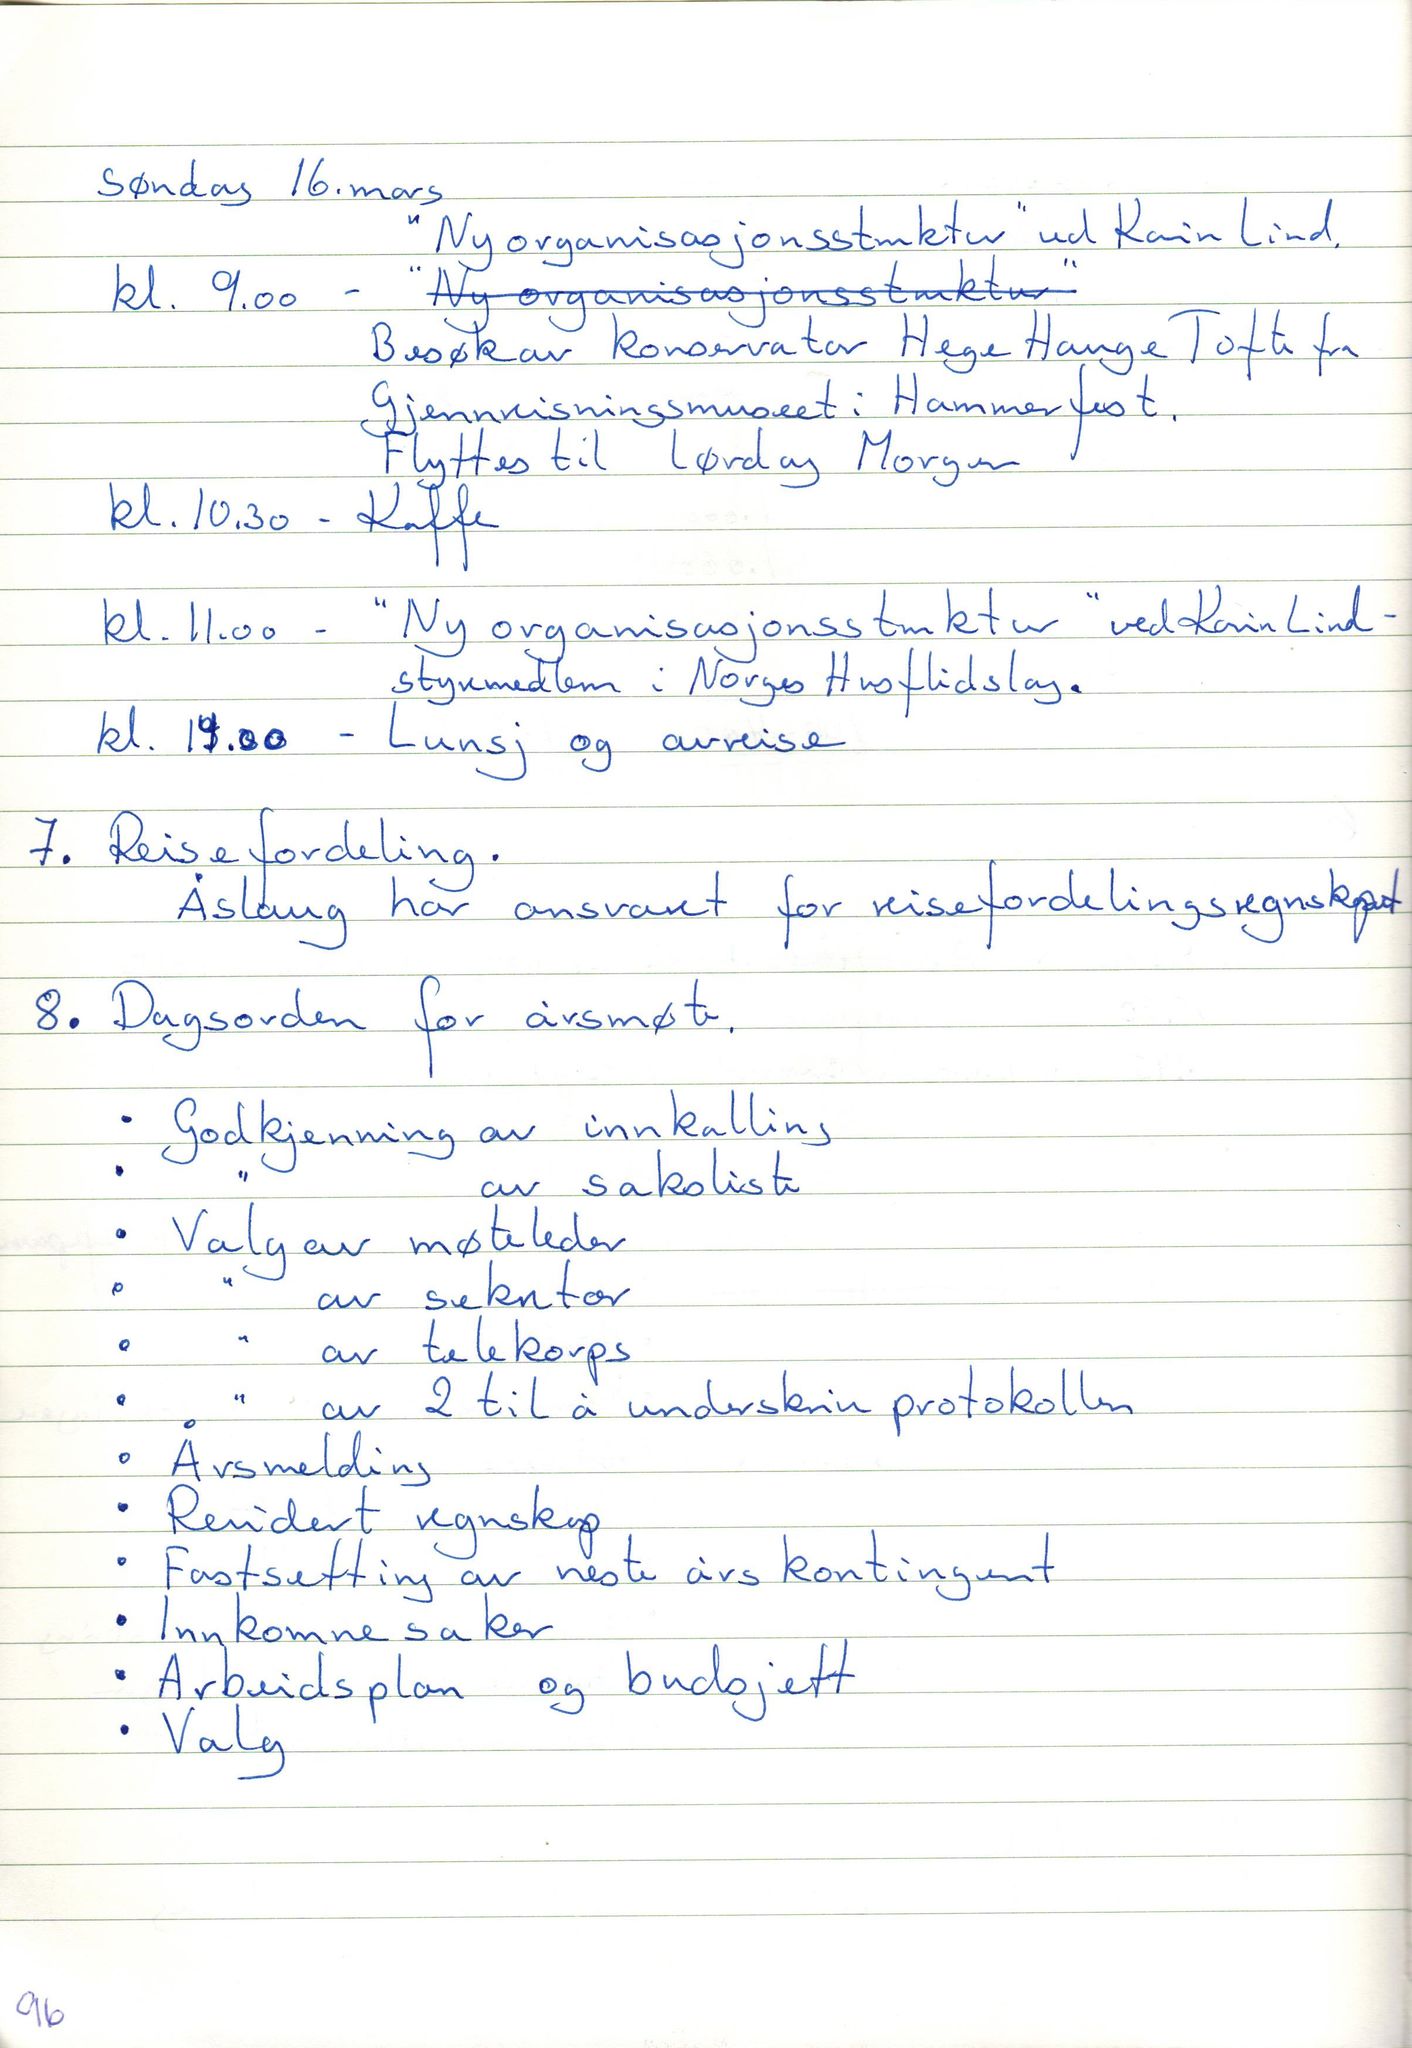 Søndag 16. mars
"Ny organisasjonsstruktur" ved Karin Lind.
kl. 9.00 - "Ny organisasjonsstruktur"
Besøk av konservator Hege Hauge Tofte fra
Gjenreisningsmuseet i Hammerfest.
Flyttes til Lørdag Morgen
kl. 10.30 - Kaffe
kl. 11.00 - "Ny organisasjonsstruktur" ved Karin Lind -
styremedlem i Norges Husflidslag.
kl. 14.00 - Lunsj og avreise
7. Reisefordeling.
Åslaug har ansvaret for reisefordelingsregnskapet
8. Dagsorden for årsmøte.
• Godkjenning av innkalling
• " av saksliste
• Valg av møteleder
• " av sekretær
• " av tellekorps
• " av 2 til å underskrive protokollen
• Årsmelding
• Revidert regnskap
• Fastsetting av neste års kontingent
• Innkomne saker
• Arbeidsplan og budsjett
• Valg
96